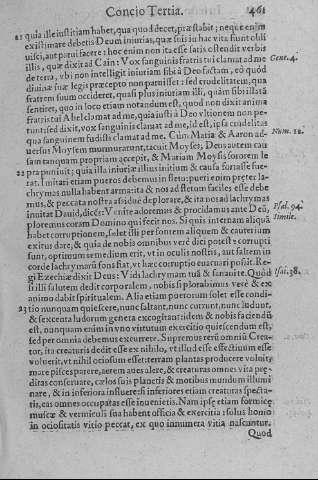 Concio Tertia. 461
21 quia ille iustitiam habet, qua quod decet, præstabit; neque enim
existimare debetis Deum iniurias, quæ suis iu hac vita sunt obli
uisci, aut parui facere: hoc enim non ita esse satis ostendit verbis
illis, quæ dixit ad Cain: Vox sanguinis fratris tui clamat ad me Gene.4.
de terra, vbi non intelligit iniurias sibi à Deo factas, eò quòd
diuinæ suæ legis præcepto non paruisset: sed crudelitatem, qua
fratrem suum occideret, quasi plus iniuriam illi, quàm sibi illatâ
sentiret, quo in loco etiam notandum est, quod non dixit anima
fratris tui Abel clamat ad me, quia iusti à Deo vltionem non pe-
tunt sed dixit, vox sanguinis clamat ad me, id est, ipsa crudelitas
qua sanguinem fudisti clamat ad me. Cùm Maria & Aaron ad- Num. 12.
uersus Moysem murmurarunt, tacuit Moyses, Deus autem cau
sam tanquam propriam accepit, & Mariam Moysis sororem le
22 pra puniuit; quia illa iniuriæ illius initium & causa fortasse fue-
rat. Imitari etiam pueros debemus in fletu: pueri enim præter la-
chrymas nulla habent arma: ita & nos ad fletum faciles esse debe
mus, & peccata nostra assiduè deplorare, & ita nos ad lachrymas
inuitat Dauid, dicês: Venite adoremus & procidamus ante Deũ, Psal. 94.
ploremus coram Domino qui fecit nos. Si quis internam aliquã Simile.
habet corruptionem, solet illi per fontem aliquem & cauterium
exitus dare, & quia de nobis omnibus verè dici potest corrupti
sunt, optimum semedium erit, vt in oculis nostris, aut saltem in
corde lachrymarũ fons fiat, vt hæc corruptio euacuari possit. Re-
gi Ezechiæ dixit Deus: Vidi lachrymam tuã & sanaui te. Quòd Isai.38.
si illi salutem dedit corporalem, nobis si plorabimus verè & ex
animo dabit spiritualem. Alia etiam puerorum solet esse conditi-
23 tio nunquam quiescere, nunc saltant, nunc currunt, nunc ludunt,
& sexcenta ludorum genera excogitant: idem & nobis faciendũ
est, nunquam enim in vno virtutum exercitio quiescendum est,
sed per omnia debemus excurrere. Supremus rerũ omniũ Crea-
tor, ita creaturis dedit esse ex nihilo, vt illud esse effectiuum esse
voluerit, vt nihil ociosum esset: terram plantas producere voluit,
mare pisces parere, aerem aues alere, & creaturas omnes vita præ-
ditas conseruare, cælos suis planetis & motibus mundum illumi
nare, & in inferiora influere: si inferiores etiam creaturas specta-
tis, eas omnes occupatas esse inuenietis. Nam ipsę etiam formicę
muscæ & vermiculi sua habent officia & exercitia: solus homo
in ociositatis vitio peccat, ex quo innumera vitia nascuntur.
Quod